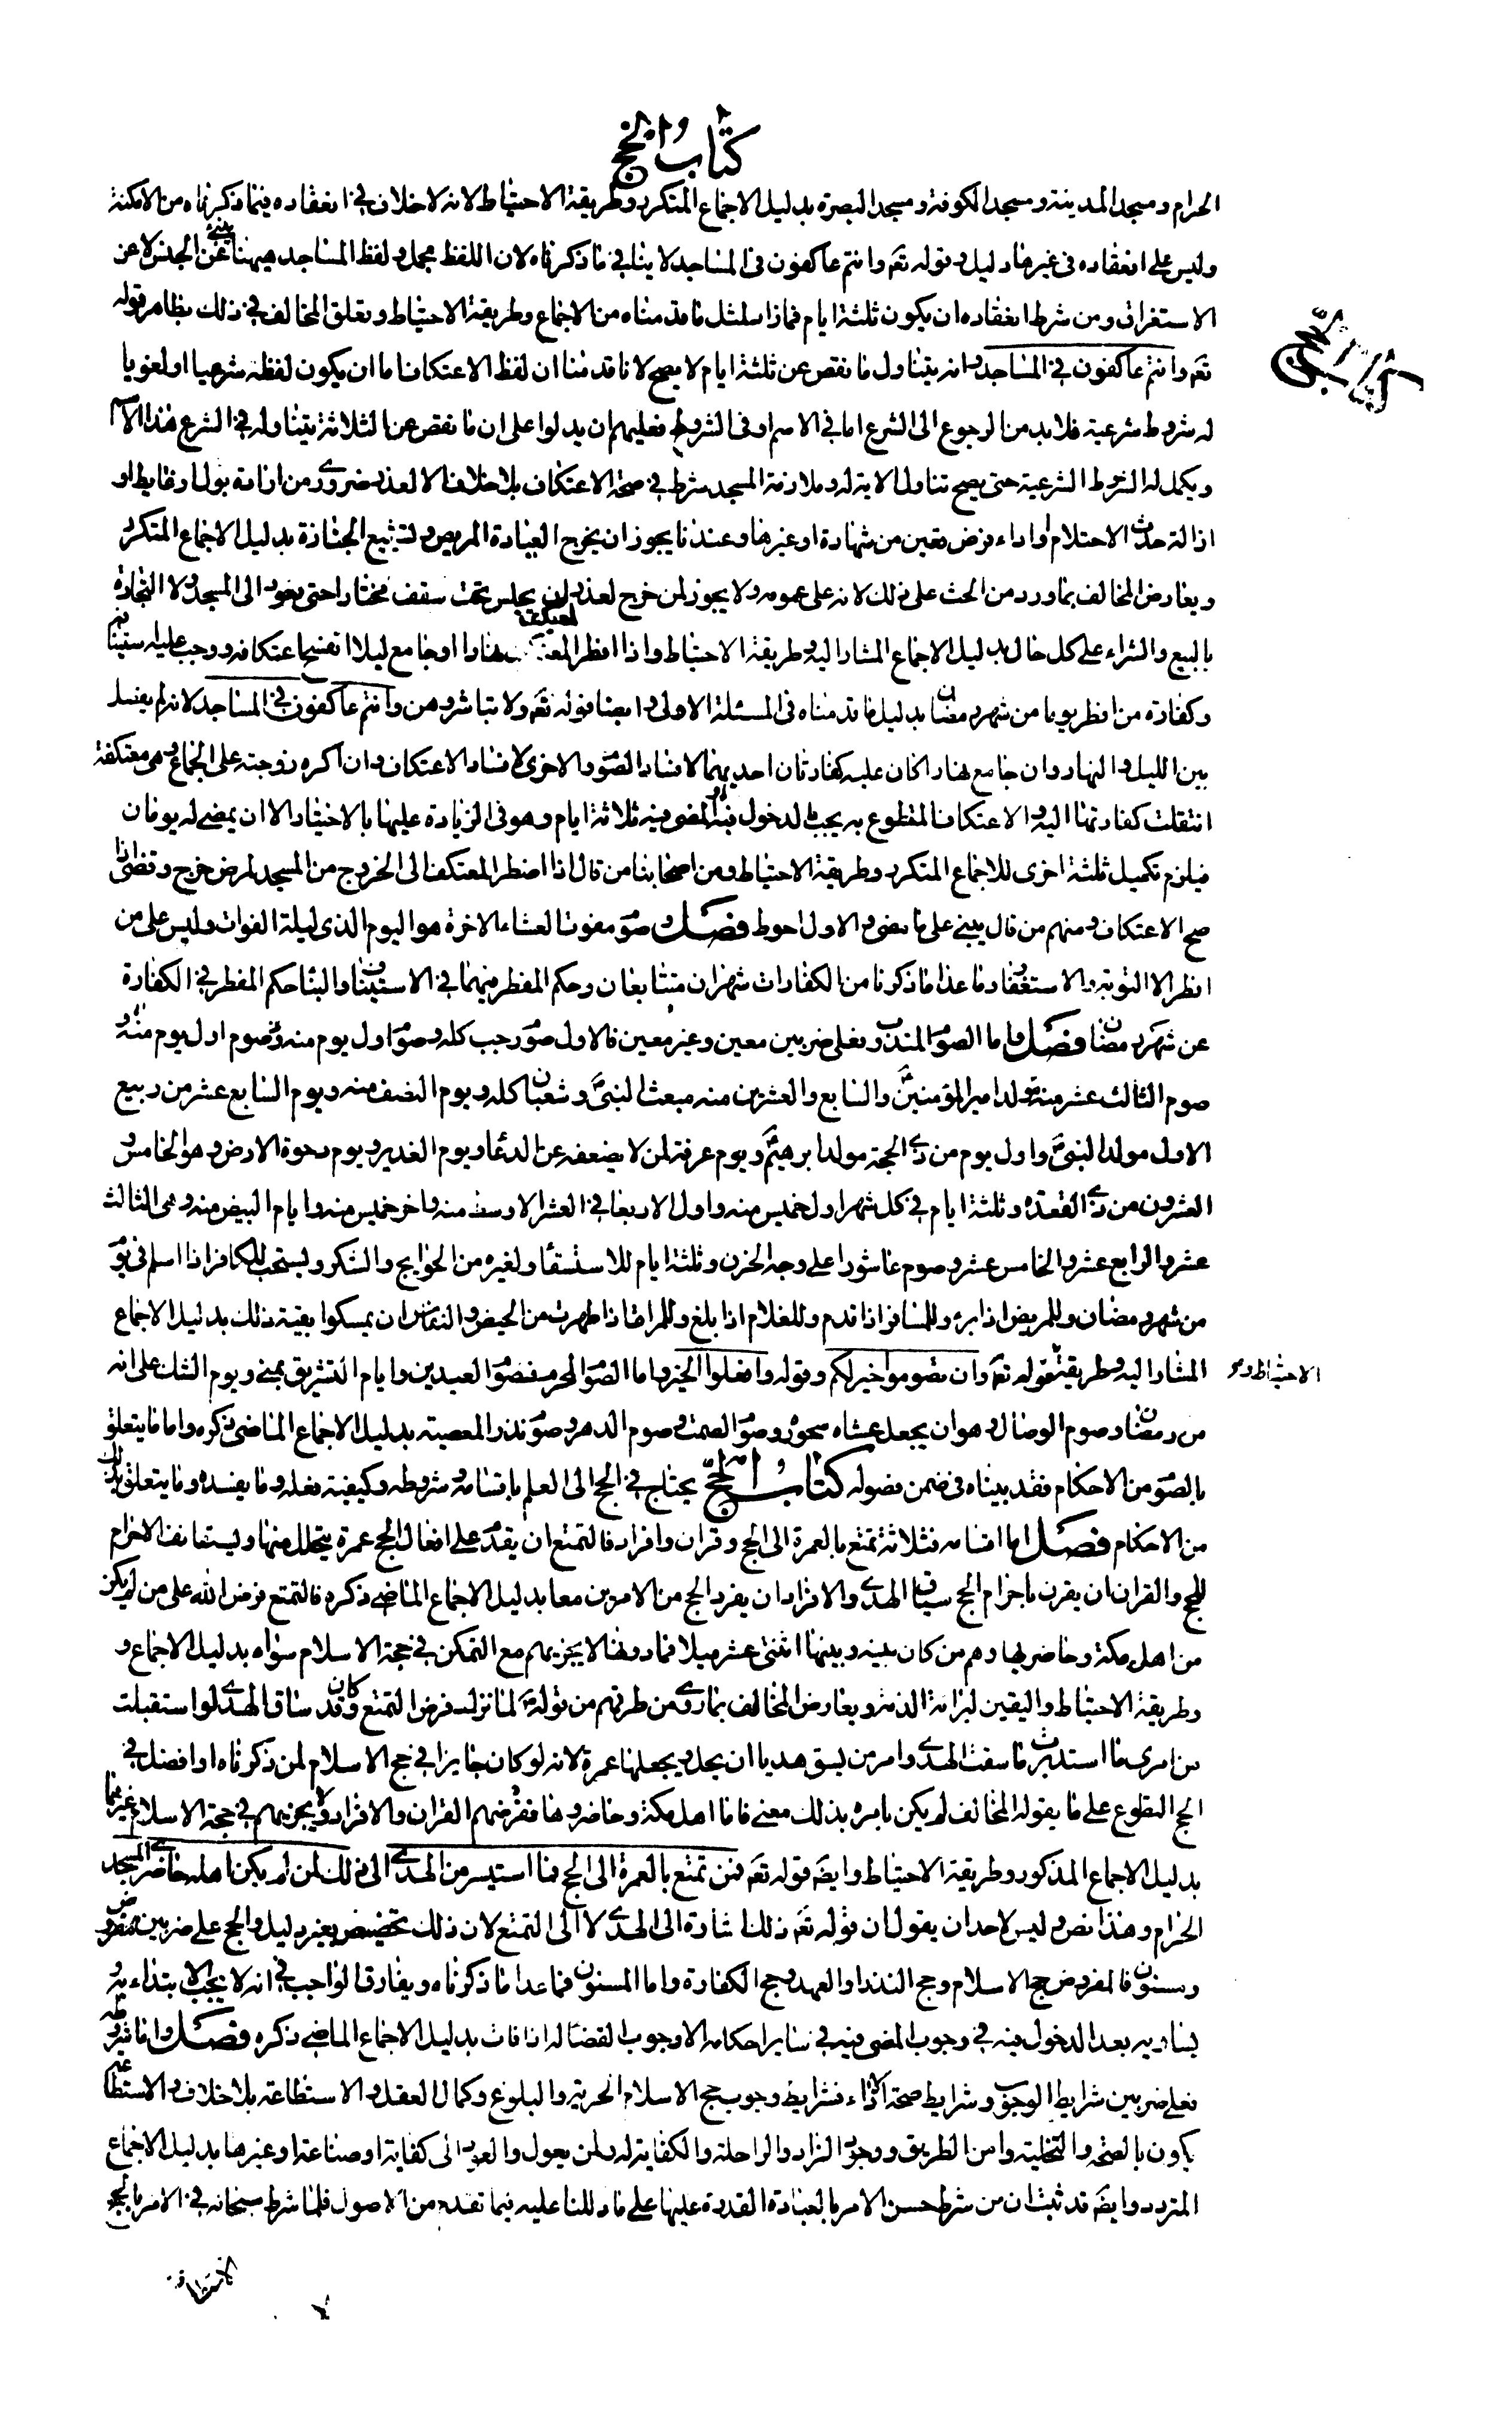 كتاب الحج
الحرام ومسجد المدينة ومسجد الكوفة ومسجد البصرة بدليل الاجماع المتكرر وطريقة الاحتياط لانه لا خلاف في انعقاده فيما ذكرناه من الامكنة
وليس على انعقاده فى غيرها دليل وقوله تعَ وانتم عاكفون فى المساجد لا ينافى ما ذكرناه لان اللفظ مجمل ولفظ المساجد هيهنا ينبئ عن الجنس لا عن
الاستغراق ومن شرط انعقاده ان يكون ثلثة ايام فمازاد لمثل ما قدمناه من الاجماع وطريقة الاحتياط وتعلق المخالف في ذلك بظاهر قوله
تعَ وانتم عاكفون في المساجد وانه يتناول ما نقص عن ثلثة ايام لا يصح لانا قد منا ان لفظ الاعتكاف اما ان يكون لفظه شرعيا او لغويا
له شروط شرعية فلا بد من الرجوع الى الشرع اما في الاسم او فى الشروط فعليهم ان يدلوا على ان ما نقص عن الثلاثة يتناوله في الشرع هذا الاسم
ويكمل له الشروط الشرعية حتى يصح تناول الاية له وملازمة المسجد شرط في صحة الاعتكاف بلا خلاف الا لعذر ضروري من اراقة بول او غايط او
ازالة حدث الاحتلام او اداء فرض تعين من شهادة او غيرها وعندنا يجوز ان يخرج لعيادة المريض ولتشييع الجنازة بدليل الاجماع المتكرر
ويعارض المخالف بما ورد من الحث على ذلك لانه على عمومه ولا يجوز لمن خرج لعذر ان يجلس تحت سقف مختارا حتى يعود الى المسجد ولا التجارة
بالبيع والشراء على كل حال بدليل الاجماع المشار اليه وطريقة الاحتياط واذا افطر المعتكف نهارا او جامع ليلا انفسخ اعتكافه ووجب عليه استينافه
وكفارة من افطر يوما من شهر رمضان بدليل ما قدمناه فى المسئلة الاولى وايضا قوله تعَ ولا تباشروهن وانتم عاكفون في المساجد لانه لم يفصل
بين الليل والنهار وان جامع نهارا كان عليه كفارتان احديهما لافساد الصوم والاخرى لافساد الاعتكاف وان اكره زوجته على الجماع وهى معتكفة
انتقلت كفارتها اليه والاعتكاف المتطوع به يجب بالدخول فيه المضى فيه ثلاثة ايام وهو فى الزيادة عليها بالاختيار الا ان يمضى له يومان
فيلزم تكميل ثلثة اخرى للاجماع المتكرر وطريقة الاحتياط ومن اصحابنا من قال اذا اضطر المعتكف الى الخروج من المسجد لمرض خرج وقضى اذا
صح الاعتكاف ومنهم من قال يبنى على ما مضى والاول احوط فصل وصوم مفوت العشاء الاخرة هو اليوم الذى ليلة الفوات وليس على من
افطر الا التوبة والاستغفار وما عدا ما ذكرنا من الكفارات شهران متتابعان وحكم المفطر فيهما في الاستيناف والبناء حكم المفطر في الكفارة
عن شهر رمضان فصل واما الصوم المندوب فعلى ضربين معين وغير معين فالاول صوم رجب كله وصوم اول يوم منه وصوم اول يوم منه و
صوم الثالث عشر منه مولد امير المؤمنين والسابع والعشرين منه مبعث النبى وشعبان كله ويوم النصف منه ويوم السابع عشر من ربيع
الاول مولد النبى واول يوم من ذي الحجة مولد ابرهيم ويوم عرفة لمن لا يضعفه عن الدعاء ويوم الغدير ويوم دحوة الارض وهو الخامس و
العشرون من ذي القعدة وثلثة ايام في كل شهر اول خميس منه واول الاربعا في العشر الاوسط منه واخر خميس منه وايام البيض منه وهى الثالث
عشر والرابع عشر والخامس عشر وصوم عاشورا على وجه الحزن وثلثة ايام للاستسقاء ولغيره من الحوايج والشكر ويستحب للكافر اذا اسلم فى يوم
من شهر رمضان وللمريض اذا برء وللمسافر اذا قدم وللغلام اذا بلغ وللمراة اذا طهرت من الحيض والنفاس ان يمسكوا بقية ذلك بدليل الاجماع
المشار اليه وطريقة قوله تعَ وان تصوموا خير لكم وقوله وافعلوا الخير واما الصوم المحرم فصوم العيدين وايام التشريق بمنى ويوم الشك على انه
الاحتياط و
من رمضان وصوم الوصال وهو ان يجعل عشاه سحوره وصوم الصمت وصوم الدهر وصوم نذر المعصية بدليل الاجماع الماضى ذكره واما ما يتعلق
بالصوم من الاحكام فقد بيناه فى ضمن فصوله كتاب الحج يحتاج في الحج الى العلم باقسامه وشروطه وكيفية فعله وما يفسده وما يتعلق بذلك
من الاحكام فصل اما اقسامه فثلاثة تمتع بالعمرة الى الحج وقران وافراد فالتمتع ان يقدم على افعال الحج عمرة يتحلل منها ويستانف الاحرام
للحج والقران ان يقرن باحرام الحج سياق الهدي والافراد ان يفرد الحج من الامرين معا بدليل الاجماع الماضي ذكره فالتمتع فرض الله على من لم يكن
من اهل مكة وحاضريها وهم من كان بينه وبينها اثنى عشر ميلا فما دونها لا يجزيهم مع التمكن في حجة الاسلام سواه بدليل الاجماع و
وطريقة الاحتياط واليقين لبراءة الذمة ويعارض المخالف بما روي من طرقهم من قوله لما نزل فرض التمتع وقد كان ساق الهدي لو استقبلت
من امرى ما استدبرت ما سقت الهدي وامر من لم يسق هديا ان يحل ويجعلها عمرة لانه لو كان جايزا في حج الاسلام لمن ذكرناه او افضل في
الحج التطوع على ما يقوله المخالف لم يكن بامره بذلك معنى فاما اهل مكة وحاضروها ففرضهم القران والافراد ولا يجزيهم في حجة الاسلام غيرهما
بدليل الاجماع المذكور وطريقة الاحتياط وايضَ قوله تعَ فمن تمتع بالعمرة الى الحج فما استيسر من الهدي الى ذلك لمن لم يكن اهله حاضري المسجد
الحرام وهذا نص وليس لاحد ان يقول ان قوله تعَ ذلك اشارة الى الهدي لا الى التمتع لان ذلك تخصيص بغير دليل والحج على ضربين مفروض
ومسنون فالمفروض حج الاسلام وحج النذر او العهد وحج الكفارة واما المسنون فما عدا ما ذكرناه ويفارق الواجب في انه لا يجب الابتداء به و
يساويه بعد الدخول فيه في وجوب المضى فيه في ساير احكامه الا وجوب القضاء له اذا فات بدليل الاجماع الماضي ذكره فصل واما شروطه
فعلى ضربين شرايط الوجوب وشرايط صحة الاداء فشرايط وجوب حج الاسلام الحرية والبلوغ وكمال العقل والاستطاعة بلا خلاف والاستطاعة
يكون بالصحة والتخلية وامن الطريق ووجود الزاد والراحلة والكفاية له ولمن يعول والعود الى كفاية او صناعة او غيرها بدليل الاجماع
المتردد وايضَ قد ثبت ان من شرط حسن الامر بالعبادة القدرة عليها على ما دللنا عليه فيما تقدم من الاصول فلما شرط سبحانه في الامر بالحج
الاستطاعة